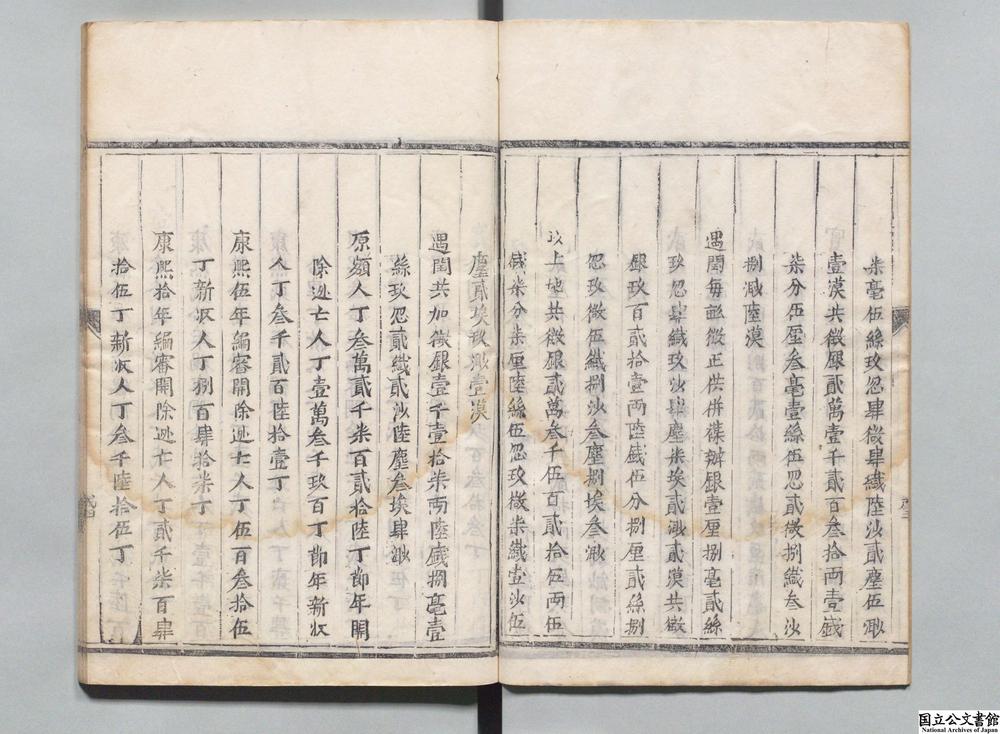 柒毫伍絲玖忽肆微肆纎陸沙貳塵伍渺
壹漠共徵銀貳萬壹千貳百叁拾兩壹錢
柒分伍厘叁毫壹絲伍忽貳微捌纎叁沙
捌渺陸漠
遇閏每畝徵正供併蓁辦銀壹厘捌毫貳絲
玖忽肆纎玖沙肆塵柒埃貳渺貳漠共徵
銀玖百貳拾壹兩陸錢伍分捌厘貳絲捌
忽玖微伍纎捌沙叁塵捌埃叁渺
以上地共徵銀貳萬叁千伍百貳拾伍兩伍
錢柒分柒厘陸絲伍忽玖微柒纎壹沙伍
塵貳埃玖渺壹漠
遇閏共加徵銀壹千壹拾柒兩陸錢捌毫壹
絲玖忽貳纎貳沙陸塵叁埃肆渺
原額人丁叁萬貳千柒百貳拾陸丁節年開
除逃亡人丁壹萬叁千玖百丁節年新收
人丁叁千貳百陸拾壹丁
康熙伍年編審開除逃亡人丁伍百叁拾伍
丁新收人丁捌百肆拾柒丁
康熙拾年編審開除逃亡人丁貳千柒百肆
拾伍丁新收人丁叁千陸拾伍丁
国立公文書館
National Archives of Japan